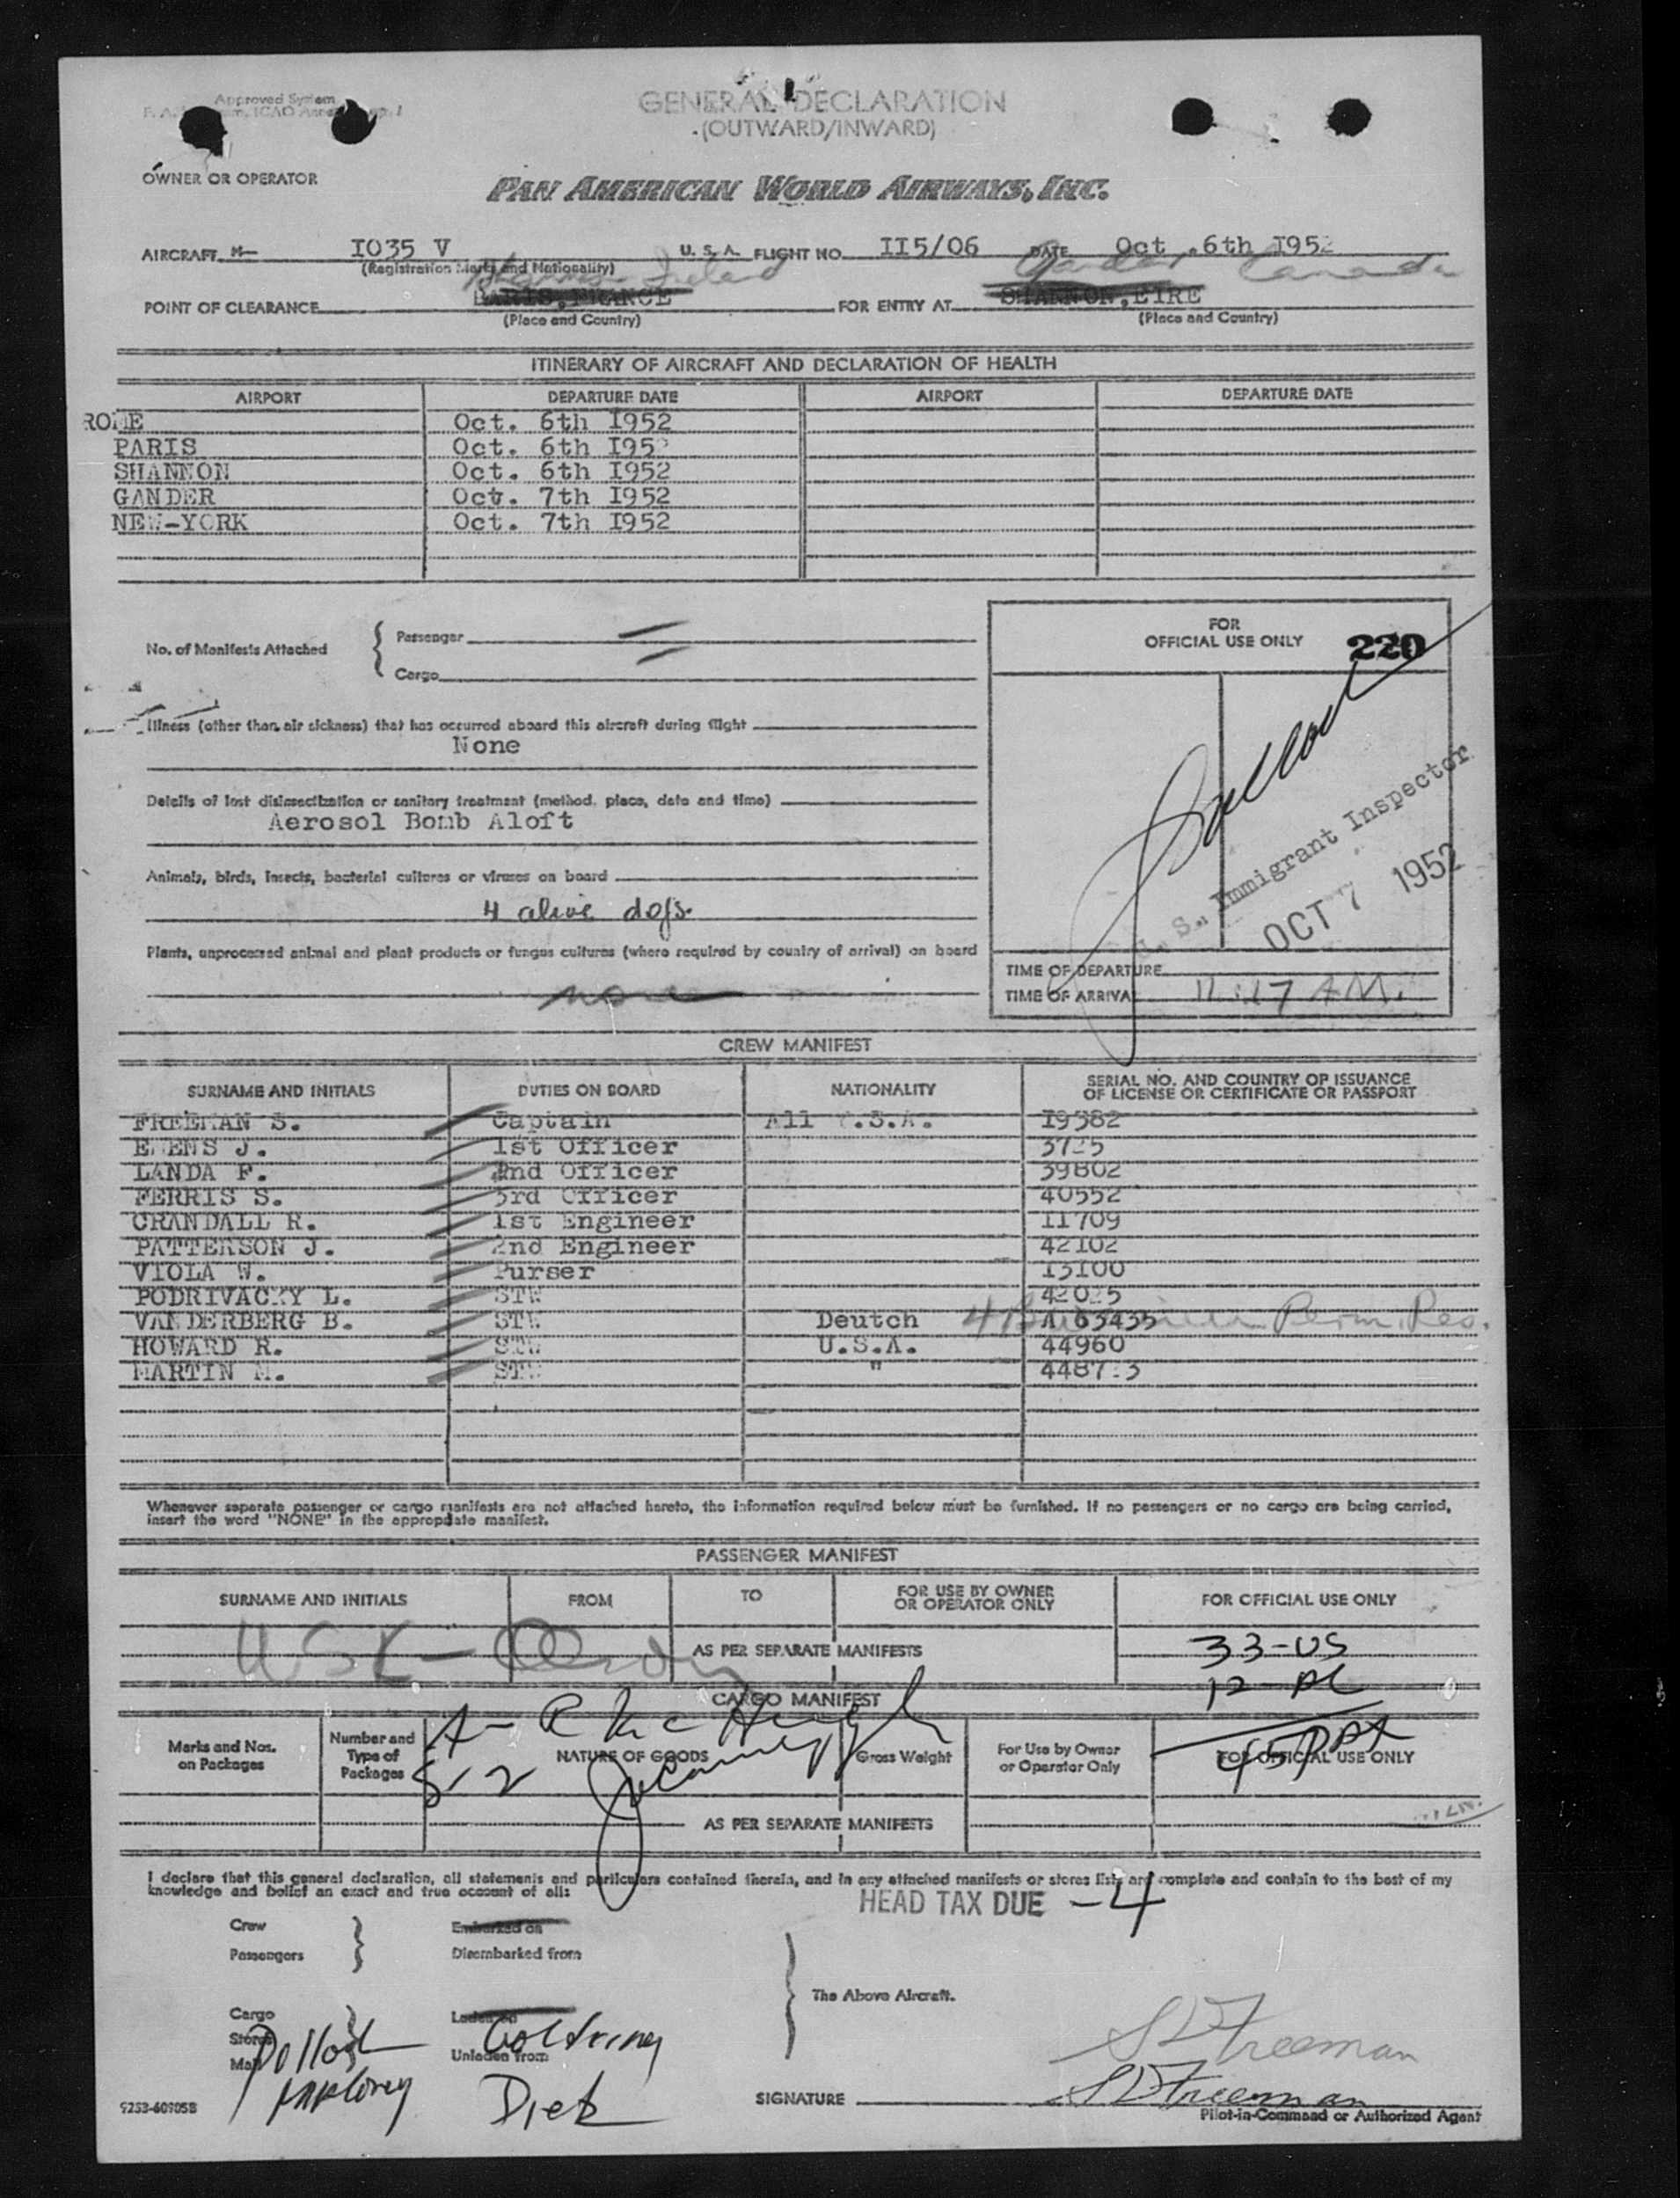 Approved System
GENERAL DECLARATION
(OUTWARD/INWARD)
OWNER OR OPERATOR
PAN AMERICAN WORLD AIRWAYS, INC.
AIRCRAFT N- I035 V U. S. A. FLIGHT NO. II5/06 DATE Oct .6th I952
(Registration Marks and Nationality)
Ireland Gander Canada
POINT OF CLEARANCE PARIS, FRANCE FOR ENTRY AT SHANNON, EIRE
(Place and Country) (Place and Country)
ITINERARY OF AIRCRAFT AND DECLARATION OF HEALTH
AIRPORT DEPARTURE DATE AIRPORT DEPARTURE DATE
ROME Oct. 6th I952
PARIS Oct. 6th I952
SHANNON Oct. 6th I952
GANDER Oct. 7th I952
NEW-YORK Oct. 7th I952
No. of Manifests Attached
Passenger
Cargo
FOR
OFFICIAL USE ONLY 220
Illness (other than air sickness) that has occurred aboard this aircraft during flight
None
Details of last disinsectization or sanitary treatment (method, place, date and time)
Aerosol Bomb Aloft
Animals, birds, insects, bacterial cultures or viruses on board
4 alive dogs
Plants, unprocessed animal and plant products or fungus cultures (where required by country of arrival) on board
none
U. S. Immigrant Inspector
OCT 7 1952
TIME OF DEPARTURE
TIME OF ARRIVAL 11:17 AM.
CREW MANIFEST
SURNAME AND INITIALS DUTIES ON BOARD NATIONALITY SERIAL NO. AND COUNTRY OF ISSUANCE
OF LICENSE OR CERTIFICATE OR PASSPORT
FREEMAN S. Captain All U.S.A. I9382
J. 1st Officer
LANDA F. 2nd Officer 39802
FERRIS S. 3rd Officer 40552
CRANDALL R. 1st Engineer II709
PATTERSON J. 2nd Engineer 42I02
VIOLA W. Purser I3I00
PODRIVACKY L. STW
VANDERBERG B. STW Deutch A 63435 Perm. Res.
HOWARD R. STW U.S.A. 44960
MARTIN M. STW "
Whenever separate passenger or cargo manifests are not attached hereto, the information required below must be furnished. If no passengers or no cargo are being carried,
insert the word "NONE" in the appropriate manifest.
PASSENGER MANIFEST
SURNAME AND INITIALS FROM TO FOR USE BY OWNER
OR OPERATOR ONLY FOR OFFICIAL USE ONLY
AS PER SEPARATE MANIFESTS 33-US
12-AL
CARGO MANIFEST
Marks and Nos.
on Packages Number and
Type of
Packages NATURE OF GOODS Gross Weight For Use by Owner
or Operator Only FOR OFFICIAL USE ONLY
45 PAX
AS PER SEPARATE MANIFESTS
I declare that this general declaration, all statements and particulars contained therein, and in any attached manifests or stores lists are complete and contain to the best of my
knowledge and belief an exact and true account of all:
HEAD TAX DUE -4
Crew Embarked on
Passengers Disembarked from
The Above Aircraft.
Cargo Laden on
Stores
Mail Unladen from
S D Freeman
SIGNATURE S D Freeman
9253-60905B Pilot-in-Command or Authorized Agent